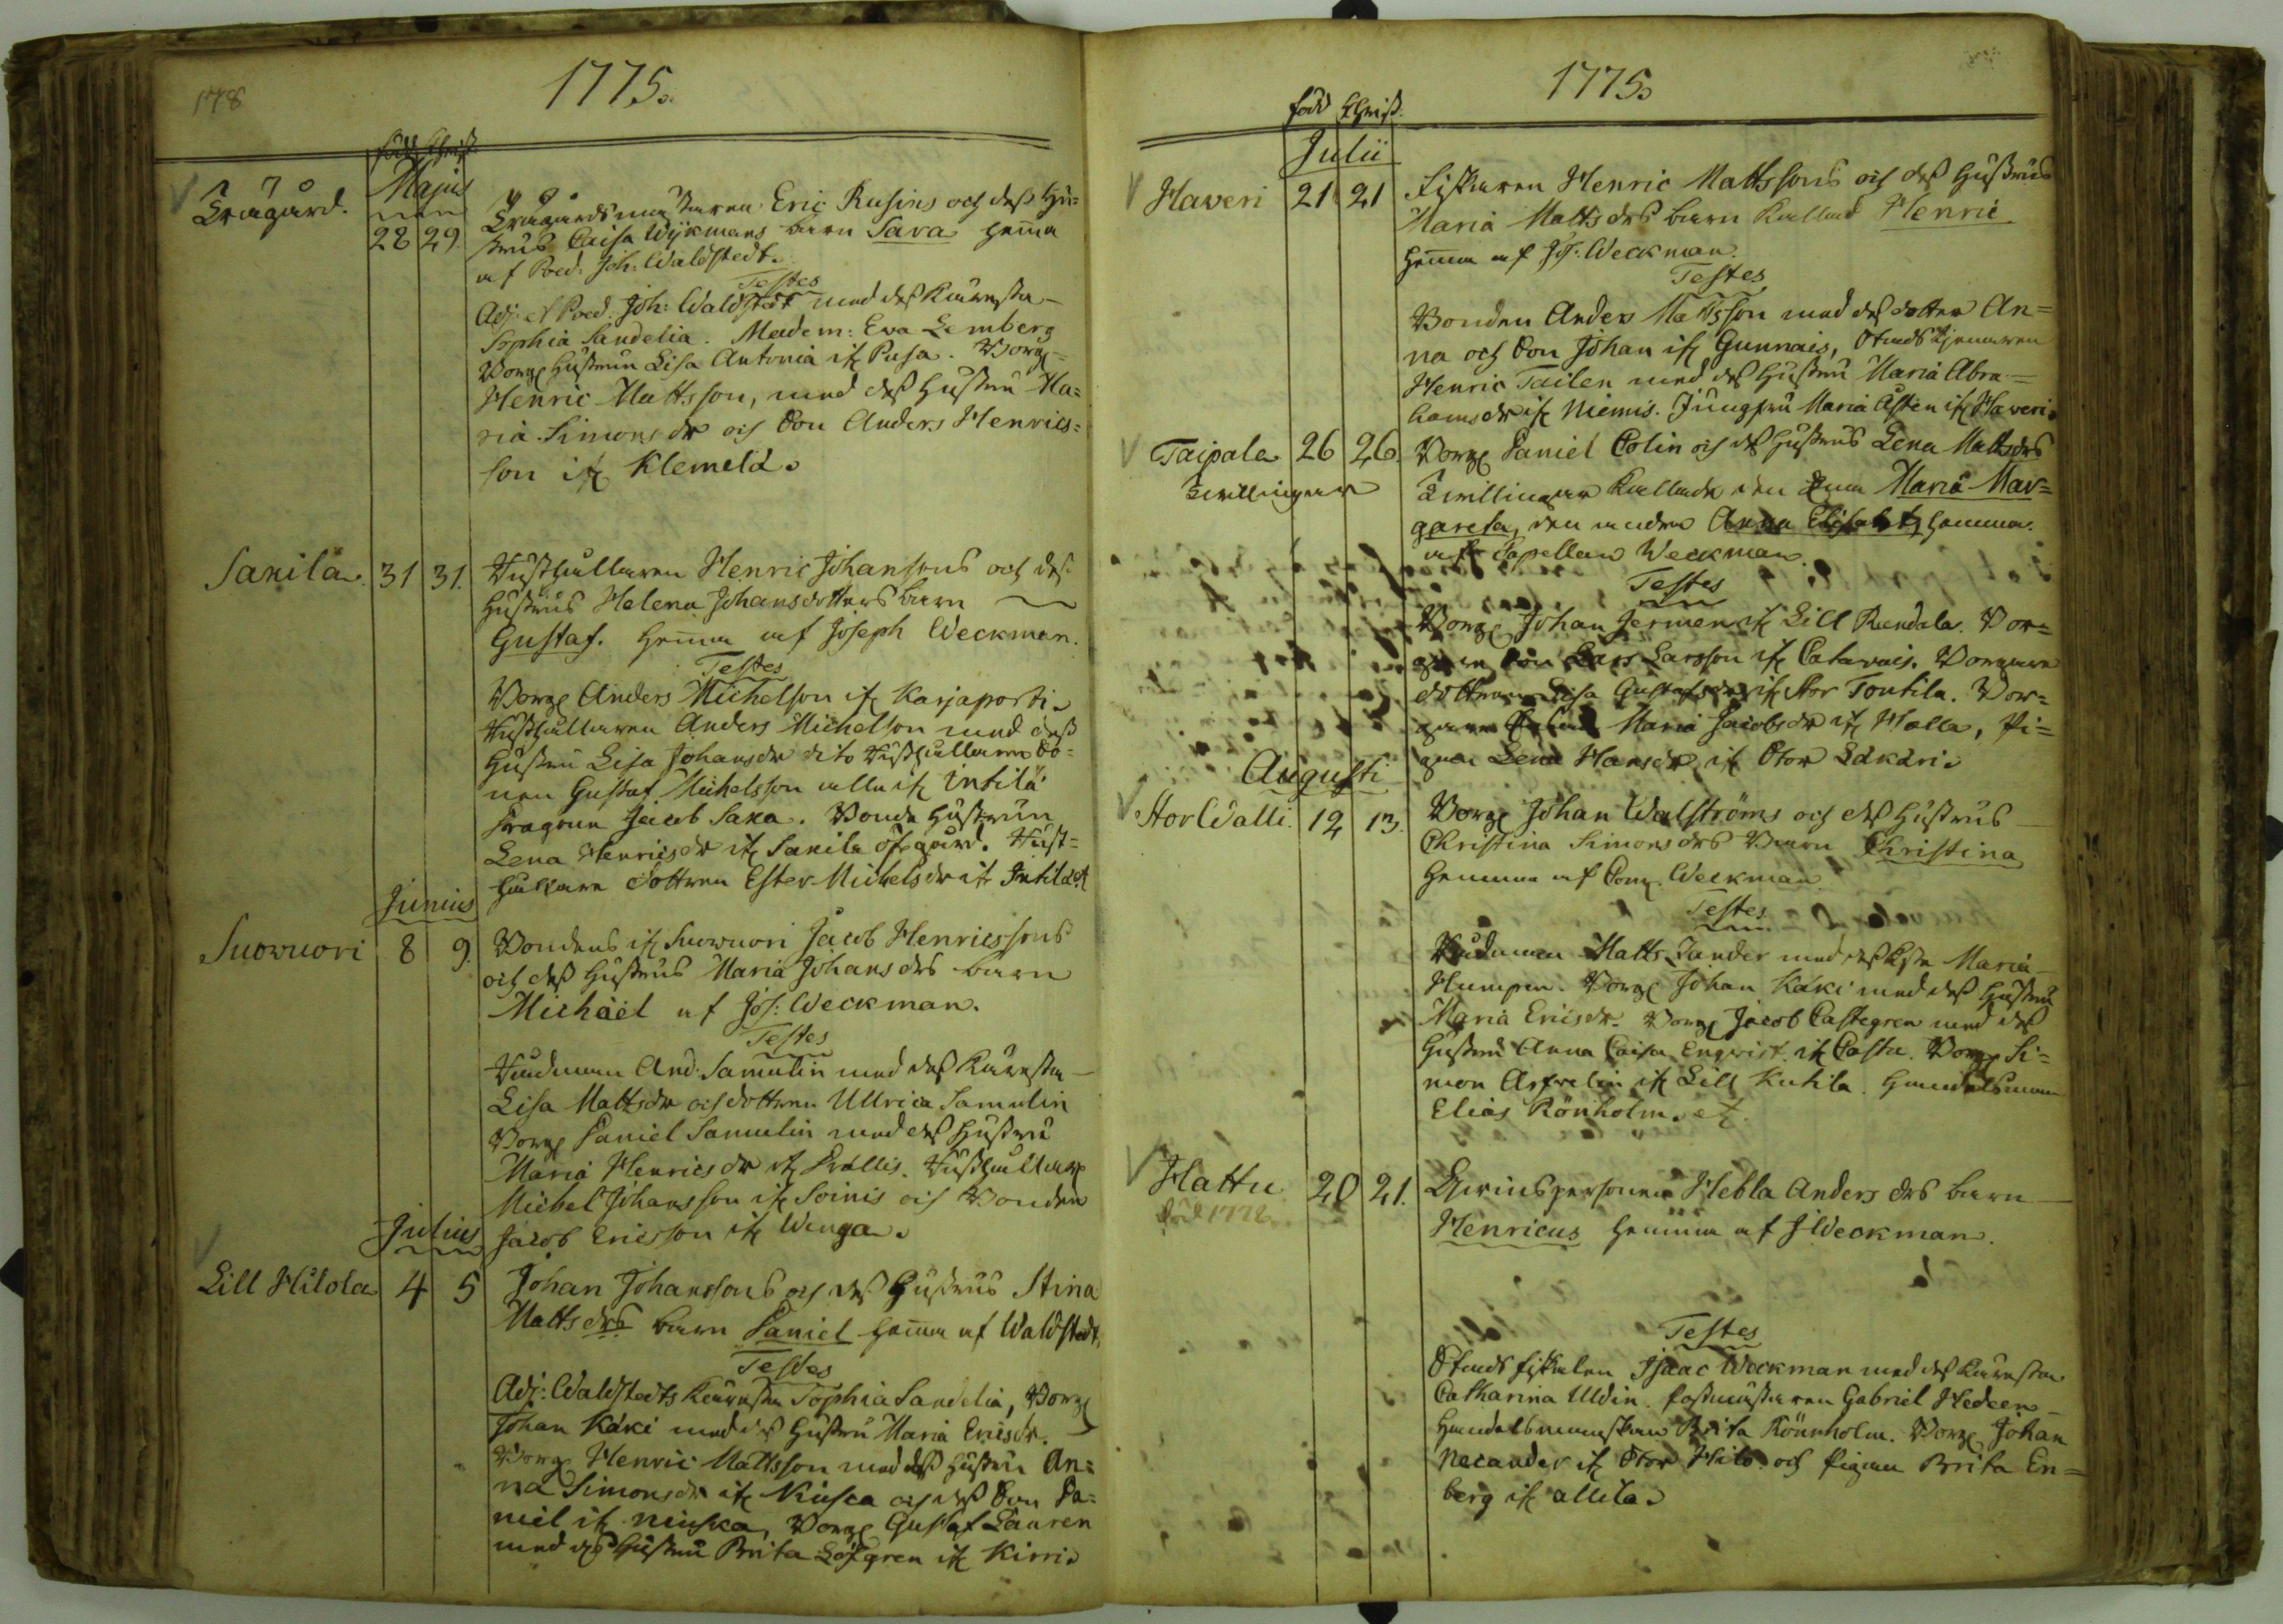 178
1775.
född Christ.
Majus
Trägård. 28 29 Trägårdsmästaren Eric Rusins och dess Hu=
strus Caisa Wijkmans barn Sara hemma
af Pæd: Joh: Waldstedt.
Testes
Adj: et Pæd: Joh: Waldstedt med dess Käresta
Sophia Sandelia. Madem: Eva Lemberg
Borg hustrun Lisa Antonia ifr Pusa. Borg
Henric Mattsson, med dess hustru Ma=
ria Simonsdr och Son Anders Henrics=
son ifr Klemelä.
Sanila. 31 31. Rusthållaren Henric Johanssons och dess
hustrus Helena Johansdotters barn
Gustaf. hemma af Joseph Weckman.
Testes
Borg Anders Michelson ifr Karjaporti.
Rusthållaren Anders Michelson med dess
hustru Lisa Johansdr dito Rusthållare So=
nen Gustaf Michelsson alla ifr Intilä.
Dragoun Jacob Saxa. Bonde hustrun
Lena Henricsdr ifr Sanila öfregård. Rust=
hållare dottren Ester Michelsdr ifr Intilä.
Junius
Suowuori 8 9. Bondens ifr Suowuori Jacob Henricssons
och dess hustrus Maria Johansdrs barn
Michaël af Jos: Weckman.
Testes
And: Samulin med dess Käresta
Lisa Mattsdr och dottren Ullrica Samulin
Borg Daniel Samulin med dess hustru
Maria Henricsdr ifr Prällis. Rusthållare
Michel Johansson ifr Soinis och Bonden
Jacob Ericsson ifr Wenga.
Julius
Lill Hilola 4 5 Johan Johanssons och dess hustrus Stina
Matts drs barn Daniel hemma af Waldstedt.
Testes
Adj: Waldstedts Käresta Sophia Sandelia, Borg
Johan Käki med dess hustru Maria Ericsdr.
Borg Henric Mattsson med dess hustru An=
na Simonsdr ifr Niusca och dess Son Da=
niel ifr Niusca, Borg Gustaf Lauren
med dess hustru Brita Löfgren ifr Kirri.
1775.
född Christ.
Julii
Haveri 21 21 Fiskaren Henric Mattssons och dess hustrus
Maria Mattsdrs barn kallad Henric
hemma af Jos: Weckman.
Testes
Bonden Anders Mattsson med dess dotter An=
na och Son Johan ifr Gunnais, Stads tjenaren
Henric Tailen med dess hustru Maria Abra=
hamsdr ifr Niemis. Jungfru Maria Asten ifr Haveri.
Taipale 26 26. Borg Daniel Colin och dess hustrus Lena Mattsdrs
Zwillingar Zwillingar kallade den ena Maria Mar=
gareta, den andra Anna Elisabet, hemma
af Capellan Weckman.
Testes
Borg Johan Jermen ifr Lill Rendala. Bor=
gare Son Lars Larsson ifr Catavais. Borgare
dottren Lisa Gustafsdr ifr Stor Tontila. Bor=
gare Maria Jacobsdr ifr Halla, Pi=
gan Lena Hansdr ifr Stor Läkäri.
Augusti
Stor Walli. 12 13. Borg Johan Walströms och dess hustrus
Christina Simonsdrs Barn Christina
hemma af Com. Weckman.
Testes
Matts Sander med dess Maria
Humpen. Borg Johan Käki med dess hustru
Maria Ericsdr. Borg Jacob Castegren med dess
hustru Anna Caisa Enqwist ifr Casta. Borg Si=
mon Asfvelin ifr Lill Kutila. Handelsman
Elias Rönholm.
Hattu 20 21. Hebla Andersdrs barn
död 1778 Henricus hemma af J Weckman.
Testes
Stads fiskalen Isaac Weckman med dess käresta
Catharina Uldin. Postmästaren Gabriel Hedeen
Brita Rönnholm. Borg Johan
Necander ifr Stor Hilo. och Pigan Brita En=
berg ifr allila.